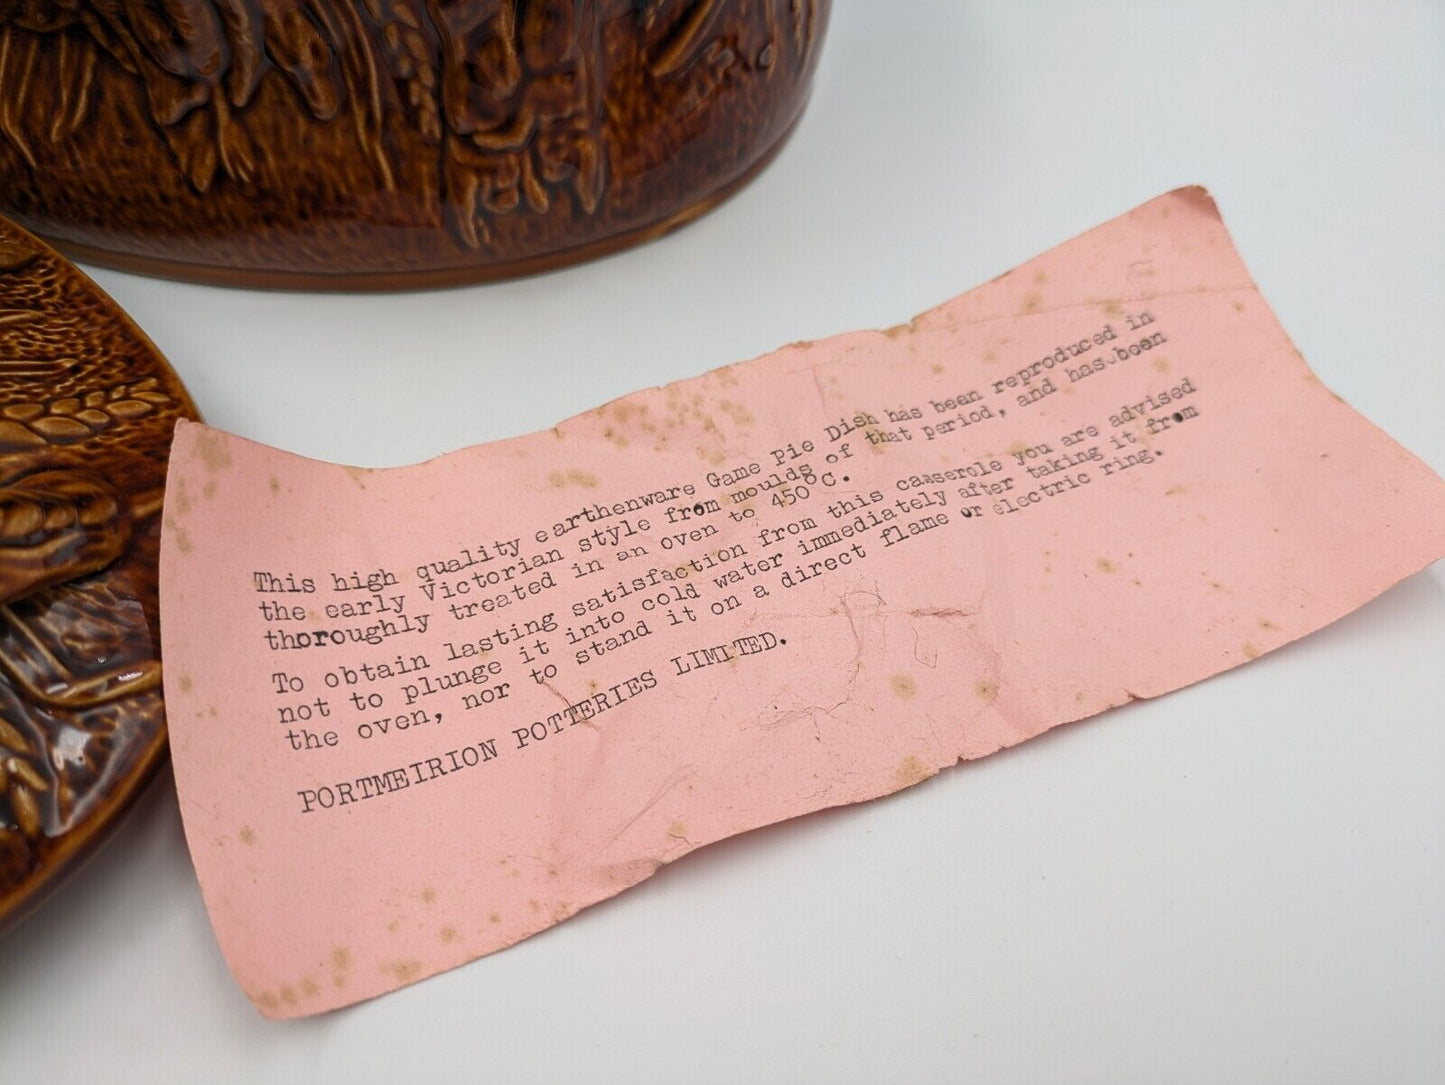 This high quality earthenware Game Pie Dish has been reproduced in
the early Victorian style from moulds of that period, and has been
thoroughly treated in an oven to 450°C.
To obtain lasting satisfaction from this casserole you are advised
not to plunge it into cold water immediately after taking it from
the oven, nor to stand it on a direct flame or electric ring.
PORTMEIRION POTTERIES LIMITED.